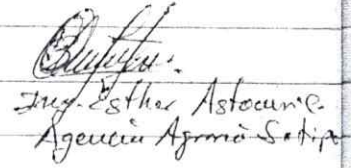 Ing. Esther Astocuri C.
Agencia Agraria Satipo